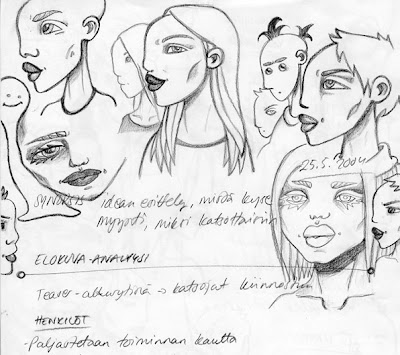 25.5.2004
SYNOPSIS idean esittely, mistä kyse
myyntti, miksi katsottaisiin
ELOKUVA-ANALYYSI
Teaser-alkusytinä → katsojat kiinnostuu
HENKILÖT
-Paljastetaan toiminnan kautta